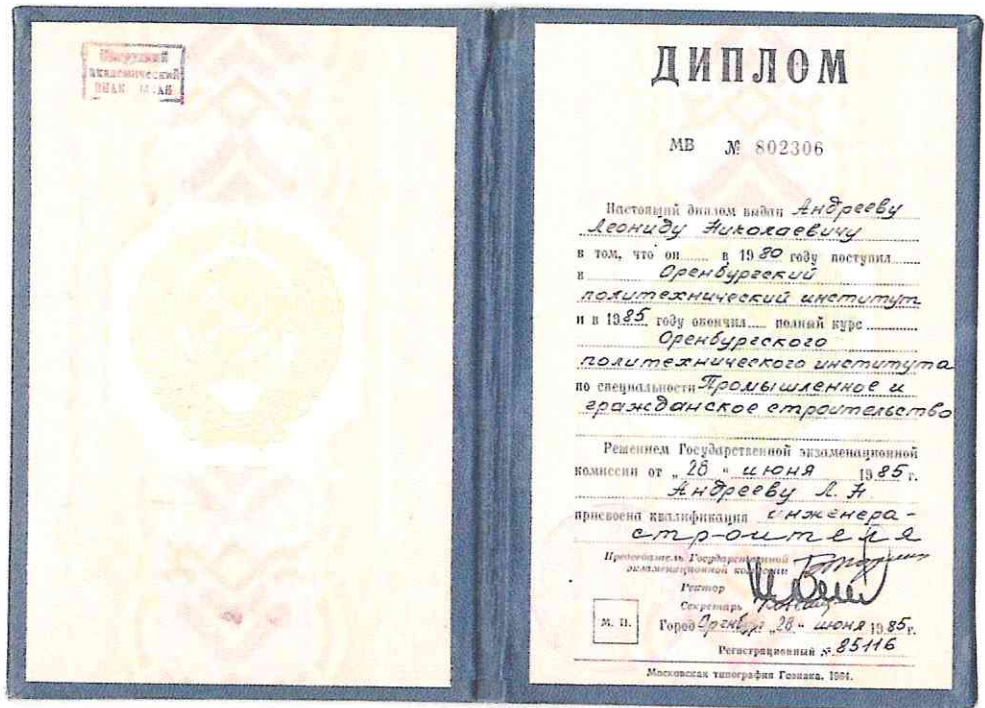 Нагрудный
академический
знак выдан
ДИПЛОМ
МВ № 802306
Настоящий диплом выдан Андрееву
Леониду Николаевичу
в том, что он в 1980 году поступил
в Оренбургский
политехнический институт
и в 1985 году окончил полный курс
Оренбургского
политехнического института
по специальности Промышленное и
гражданское строительство
Решением Государственной экзаменационной
комиссии от „28“ июня 1985 г.
Андрееву Л. Н.
присвоена квалификация инженера-
строителя
Председатель Государственной
экзаменационной комиссии
Ректор
Секретарь
М. П.
Город Оренбург „28“ июня 1985 г.
Регистрационный № 85116
Московская типография Гознака. 1984.